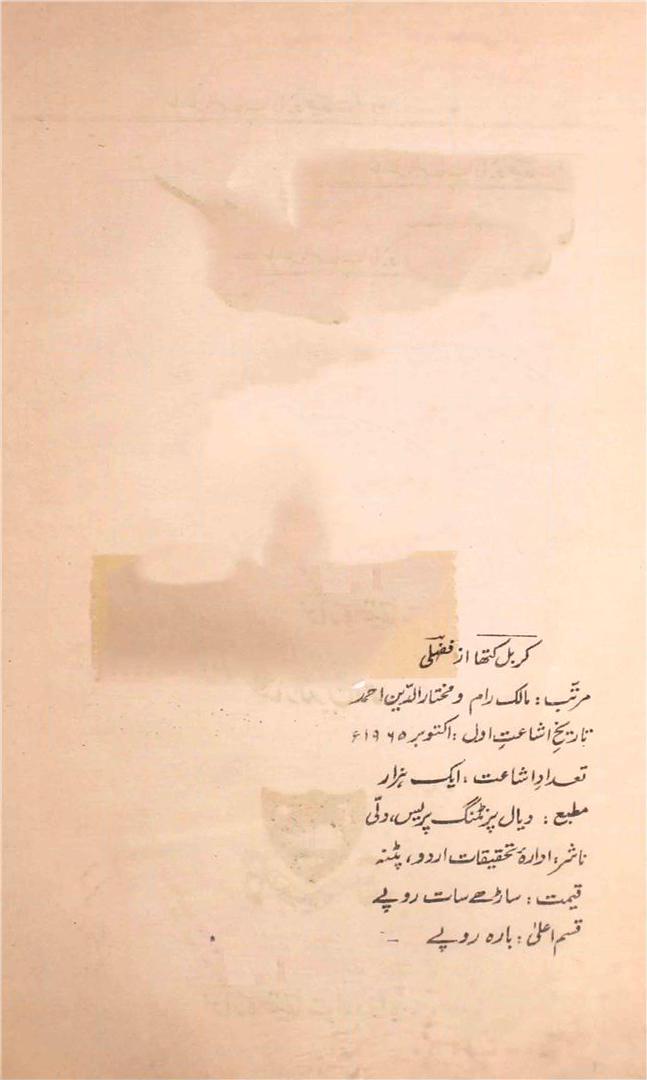 کربل کتھا از فضلی
مرتّب: مالک رام و مختار الدّین احمد
تاریخِ اشاعتِ اول: اکتوبر ۱۹۶۵ء
تعدادِ اشاعت: ایک ہزار
مطبع: دیال پرنٹنگ پریس، دلّی
ناشر: ادارۂ تحقیقات اردو، پٹنہ
قیمت: ساڑھے سات روپے
قسم اعلیٰ: بارہ روپے